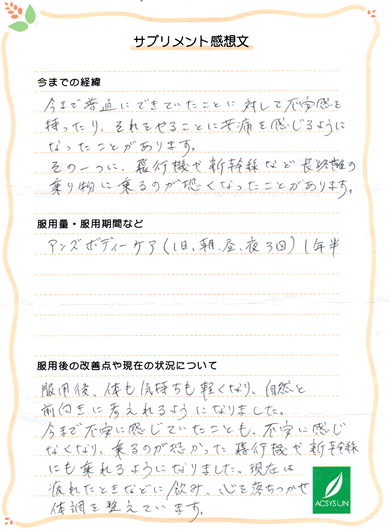 サプリメント感想文
今までの経緯
今まで普通にできていたことに対して不安感を
持ったり、それをやることに苦痛を感じるように
なったことがあります。
その一つに、飛行機や新幹線など長距離の
乗り物に乗るのが恐くなったことがあります。
服用量・服用期間など
アンズボディーケア（1日、朝、昼、夜3回）1年半
服用後の改善点や現在の状況について
服用後、体も気持ちも軽くなり、自然と
前向きに考えれるようになりました。
今まで不安に感じていたことも、不安に感じ
なくなり、乗るのが恐かった飛行機や新幹線
にも乗れるようになりました。現在は
疲れたときなどに飲み、心を落ちつかせ
体調を整えています。
ACSYS LIN